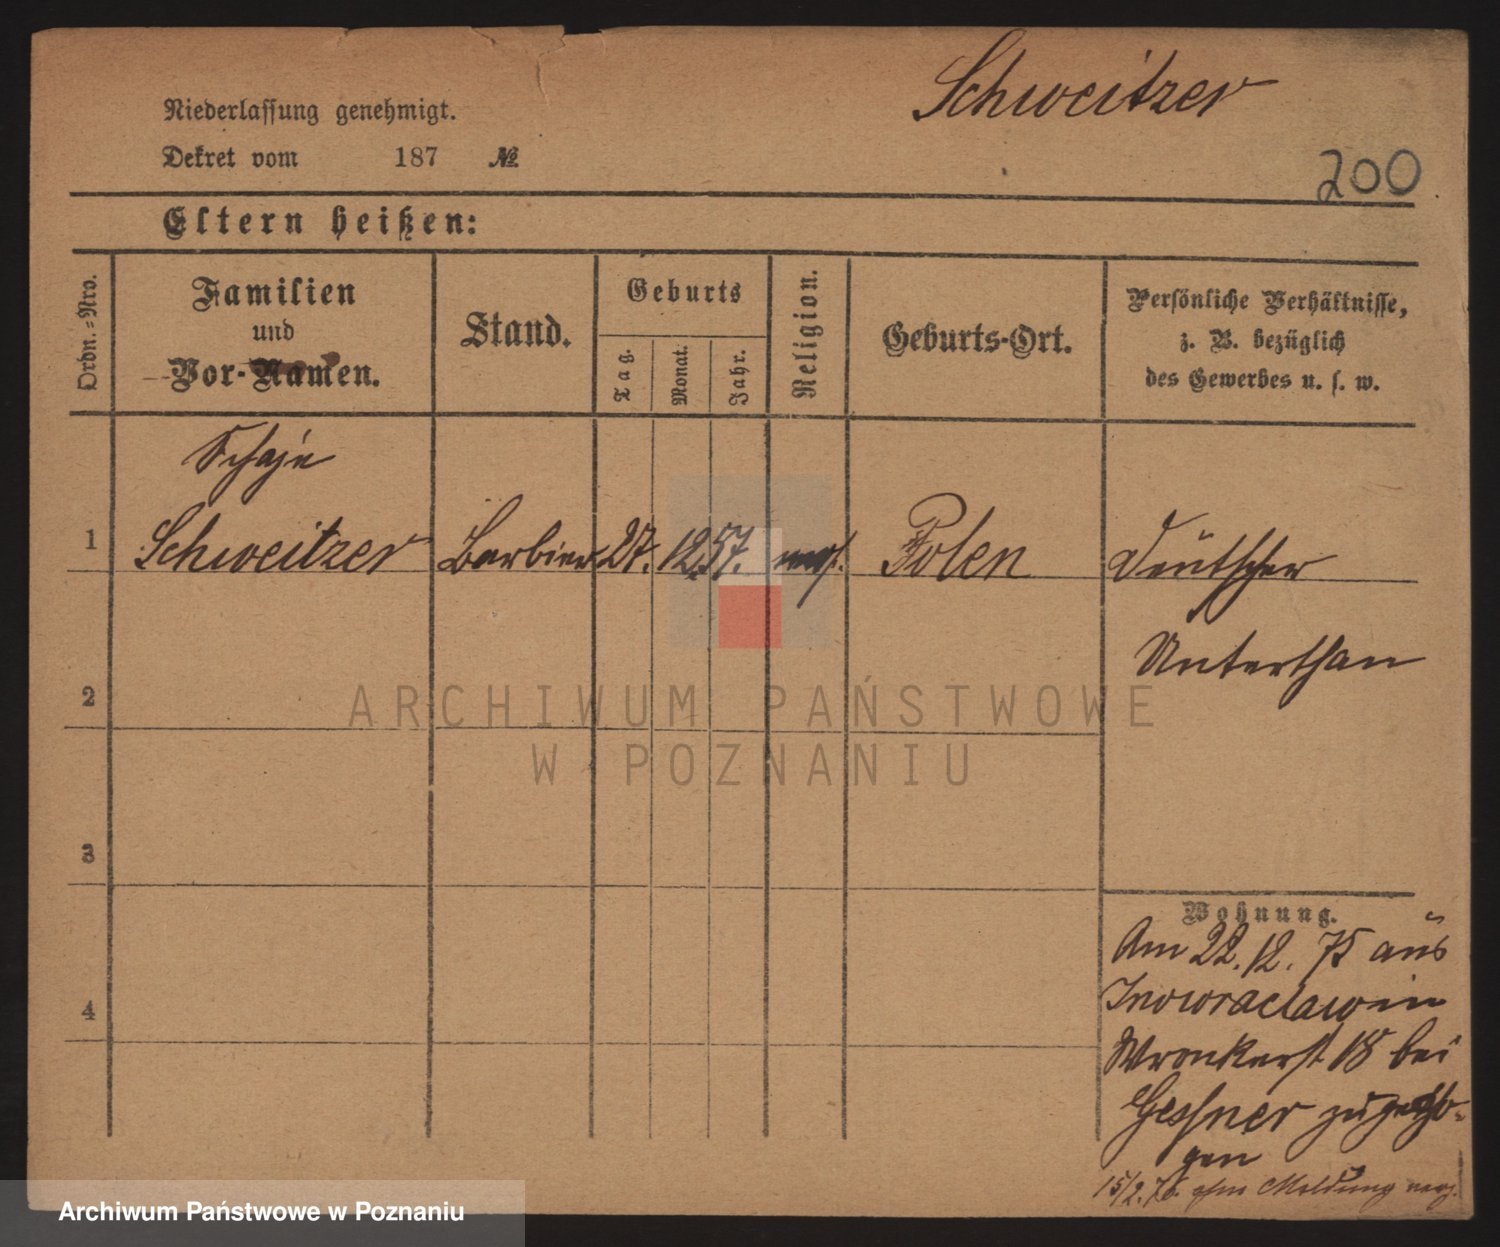 Schweitzer
Niederlassung genehmigt.
Dekret vom 187 №
200
Eltern heißen:
Ordn.-Nro.
Familien
und
Vor-Namen.
Stand.
Geburts
Tag.
Monat.
Jahr.
Religion.
Geburts-Ort.
Persönliche Verhältnisse,
z. B. bezüglich
des Gewerbes u. s. w.
Schaje
1 Schweitzer Barbier 27. 12. 57. mos. Polen Deutscher
Unterthan
2
ARCHIWUM PAŃSTWOWE
W POZNANIU
3
Wohnung.
Am 22. 12. 75 aus
Inowraclaw in
4
Wronkerst 18 bei
Gessner zugezo-
gen
15/2. 76. ohne Meldung verz.
Archiwum Państwowe w Poznaniu